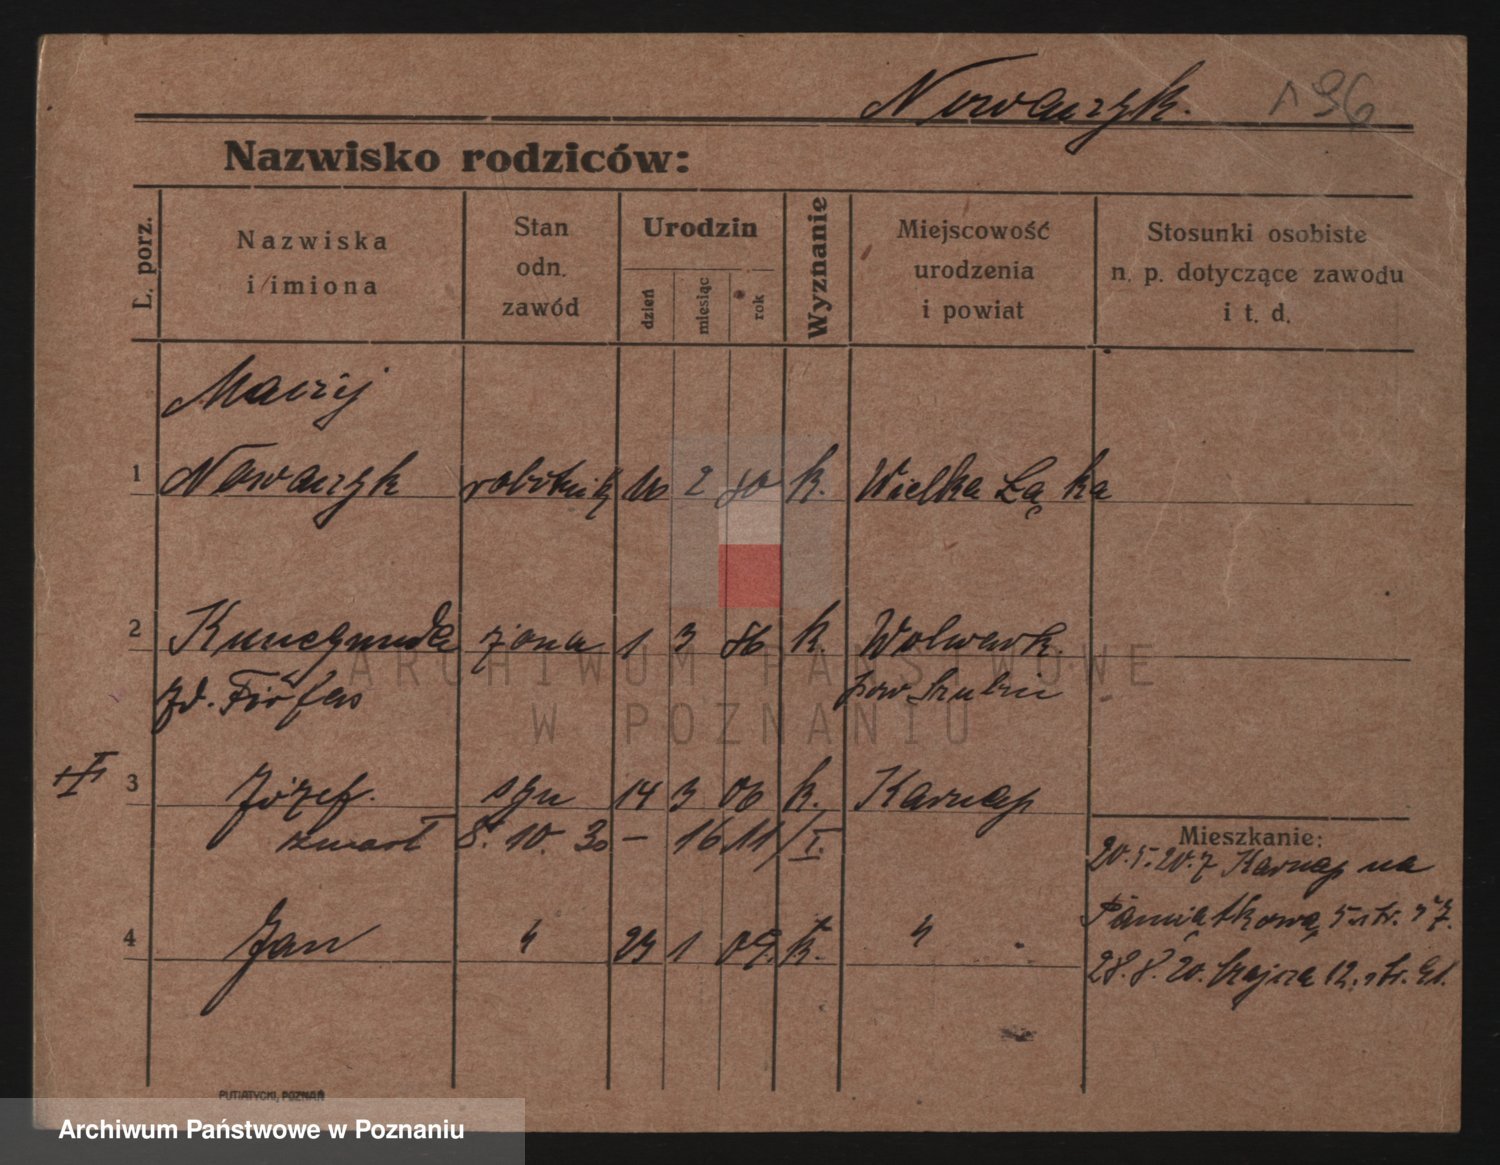 Nowaczyk. 196
Nazwisko rodziców:
L. porz.
Nazwiska
i imiona
Stan
odn.
zawód
Urodzin
dzień
miesiąc
rok
Wyznanie
Miejscowość
urodzenia
i powiat
Stosunki osobiste
n. p. dotyczące zawodu
i t. d.
Maciej
1 Nowaczyk robotnik 10 2 80 k. Wielka Łąka
2 Kunegunda żona 1 3 86 k. Wolwark.
zd. pow. Szubin
3 Józef. syn 14 3 06 k. Karnap
zmarł 8. 10. 30 - 16 11/I.
4 Jan " 23 1 09. k. "
Mieszkanie:
20.5.20.7 Karnap na
Pamiątkową 5 str.
28.8.20. 12. str. 91.
ARCHIWUM PAŃSTWOWE
W POZNANIU
PUTIATYCKI, POZNAŃ
Archiwum Państwowe w Poznaniu